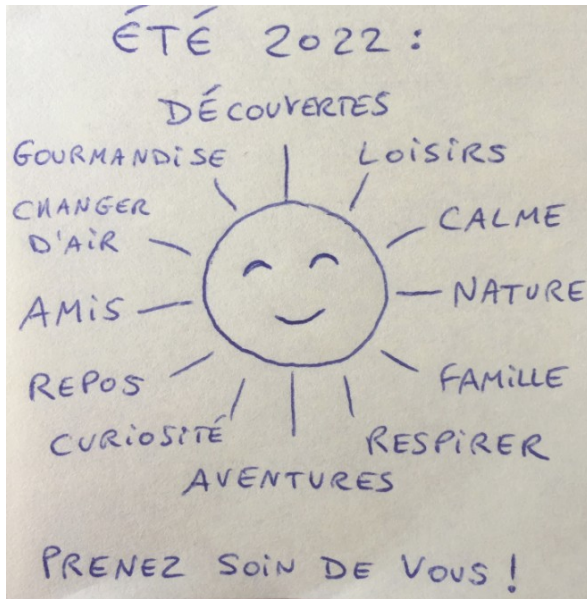 ÉTÉ 2022 :
DÉCOUVERTES
GOURMANDISE
LOISIRS
CHANGER
D'AIR
CALME
AMIS
NATURE
REPOS
FAMILLE
CURIOSITÉ
RESPIRER
AVENTURES
PRENEZ SOIN DE VOUS !